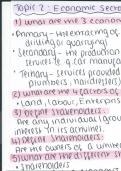 Topic 2: Economic Secto
1) What are the 3 econom
• Primary - the extracting of
drilling or quarrying)
• Secondary - the production
(e.g. car manufac
• Tertiary - services provided
plumbers, hairdressers)
2) What are the 4 factors of
• Land, Labour, Enterpris
3) Define Stakeholders.
Are any individual / grou
interest in its activities.
4) Define Shareholders.
Are the owners of a limited
5) What are the different st
• Shareholders • Ma